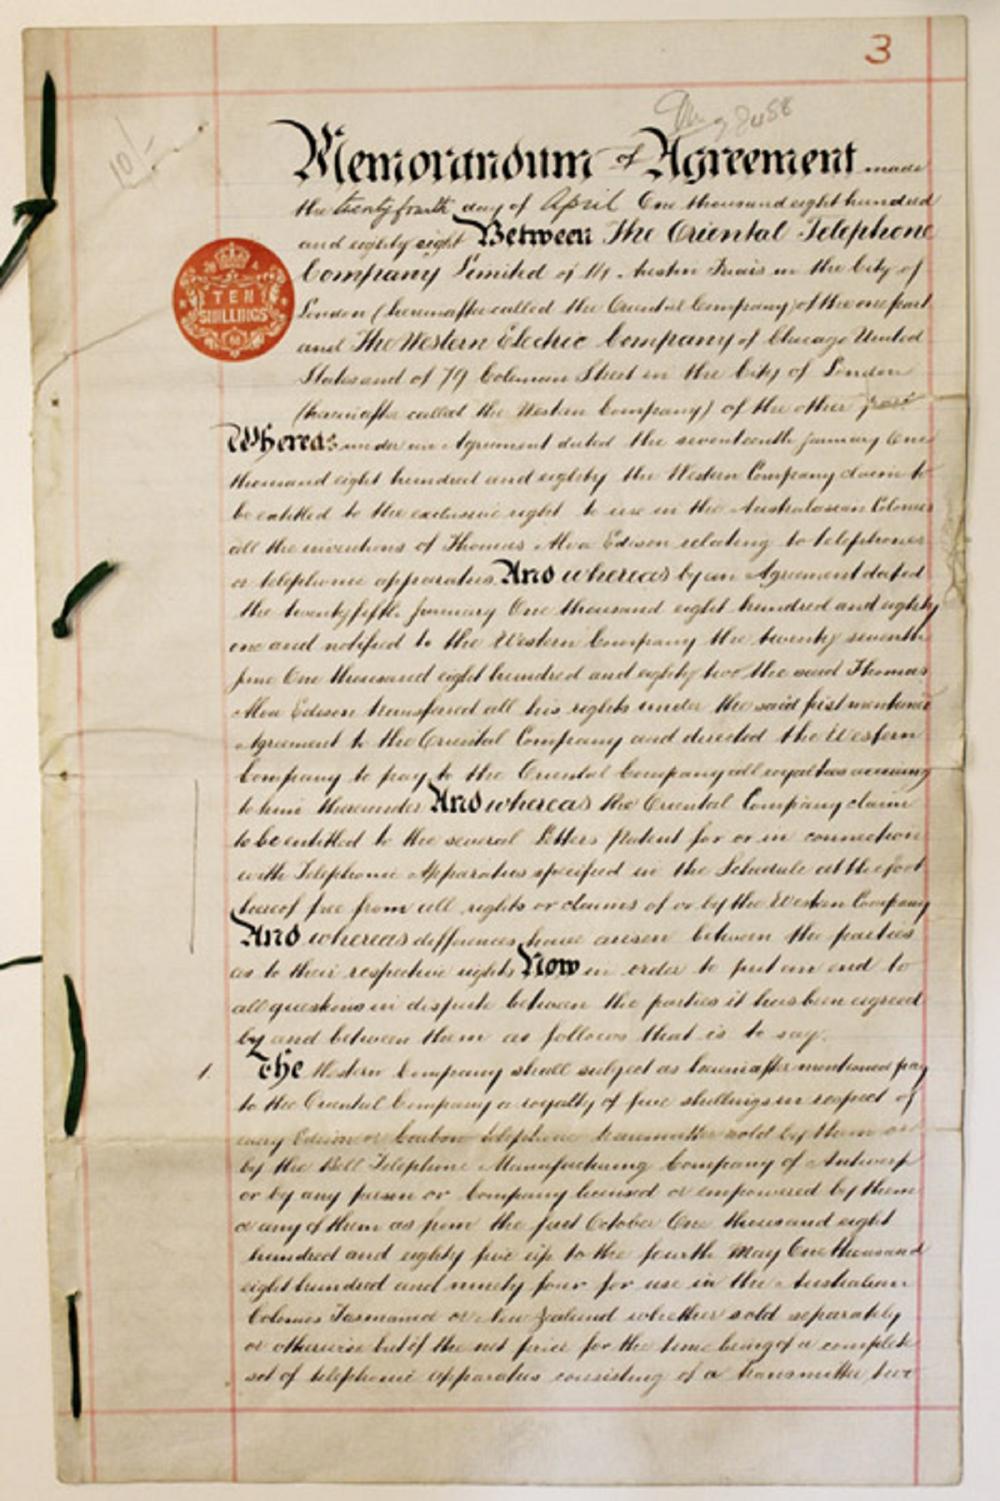 3
10/-
Memorandum of Agreement made
the twenty fourth day of April One thousand eight hundred
and eighty eight Between The Oriental Telephone
TEN
SHILLINGS
Company Limited of Austin Friars in the City of
London (hereinafter called the Oriental Company) of the one part
and The Western Electric Company of Chicago United
States and of 79 Coleman Street in the City of London
(hereinafter called the Western Company) of the other part
Whereas under an Agreement dated the seventeenth January One
thousand eight hundred and eighty the Western Company claim to
be entitled to the exclusive right to use in the Australasian Colonies
all the inventions of Thomas Alva Edison relating to telephones
or telephonic apparatus And whereas by an Agreement dated
the twenty fifth January One thousand eight hundred and eighty
one and notified to the Western Company the twenty seventh
June One thousand eight hundred and eighty two the said Thomas
Alva Edison transferred all his rights under the said first mentioned
Agreement to the Oriental Company and directed the Western
Company to pay to the Oriental Company all royalties accruing
to him thereunder And whereas the Oriental Company claim
to be entitled to the several Letters Patent for or in connection
with Telephonic Apparatus specified in the Schedule at the foot
hereof free from all rights or claims of or by the Western Company
And whereas differences have arisen between the parties
as to their respective rights Now in order to put an end to
all questions in dispute between the parties it has been agreed
by and between them as follows that is to say.
1. The Western Company shall subject as hereinafter mentioned pay
to the Oriental Company a royalty of five shillings in respect of
every Edison or Carbon telephone transmitter sold by them or
by the Bell Telephone Manufacturing Company of Antwerp
or by any person or Company licensed or empowered by them
or any of them as from the first October One thousand eight
hundred and eighty five up to the fourth May One thousand
eight hundred and ninety four for use in the Australian
Colonies Tasmania or New Zealand whether sold separately
or otherwise but if the net price for the time being of a complete
set of telephonic apparatus consisting of a transmitter two